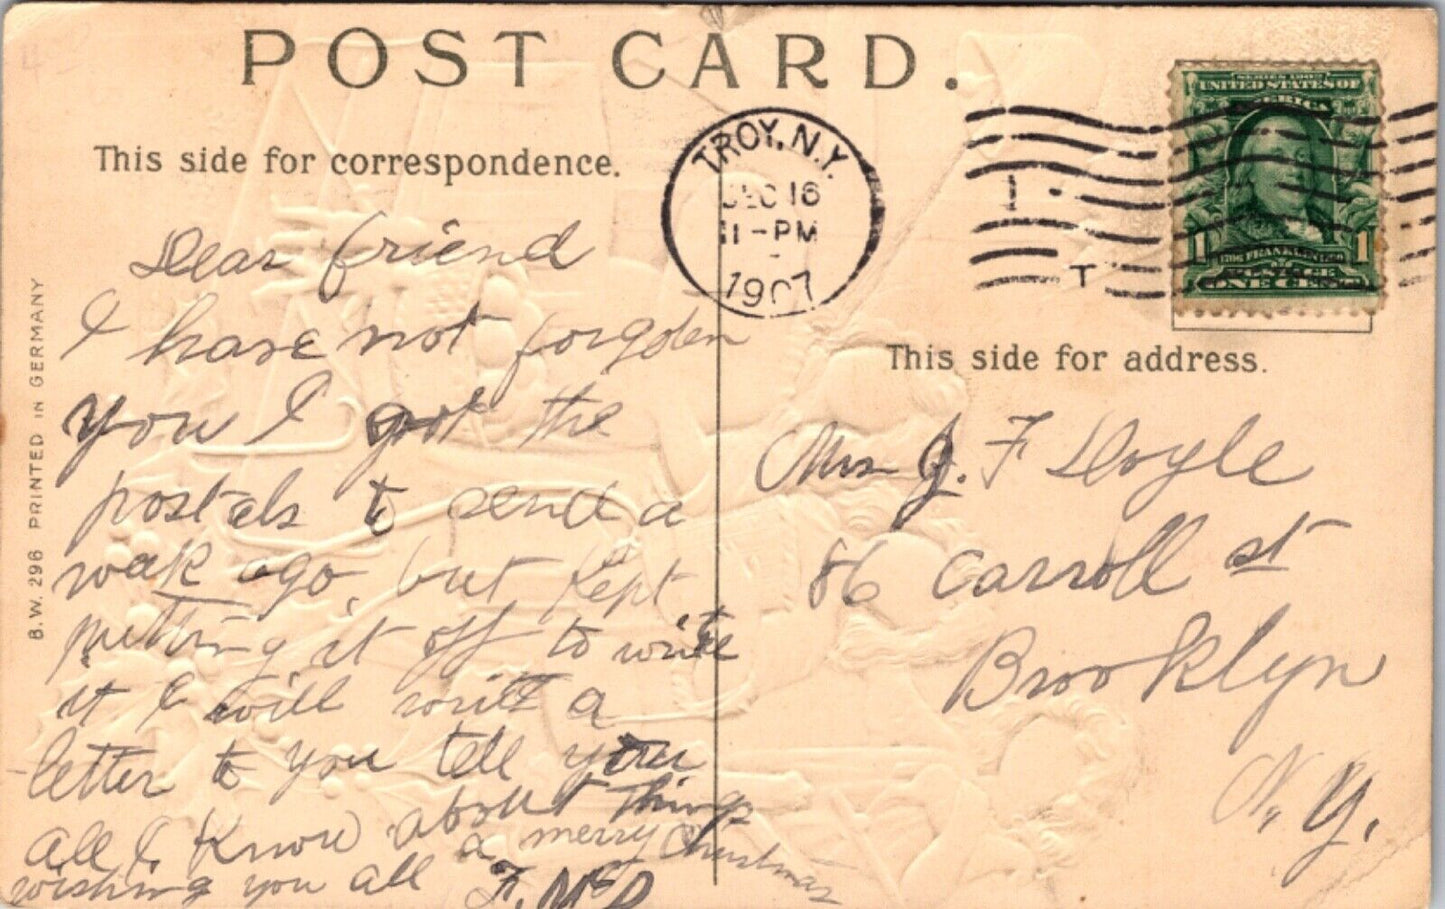 POST CARD.
This side for correspondence.
TROY, N.Y.
DEC 16
11-PM
1907
1
T
SERIES 1902
UNITED STATES OF
AMERICA
1 1
1706 FRANKLIN 1790
ONE CENT
This side for address.
B.W. 296 PRINTED IN GERMANY
Dear friend
I have not forgoten
you I got the
postals to send a
weak ago, but kept
putting it off to write
it I will write a
letter to you tell you
all I know about things
wishing you all a merry Christmas
F. McD
Mrs J. F Doyle
86 Carroll st
Brooklyn
N. Y.